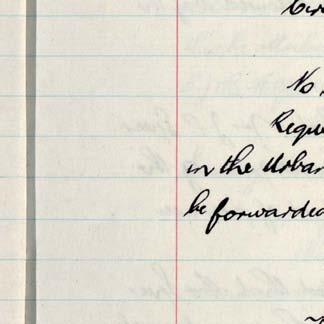 No
Requ
in the Urban
be forwarded